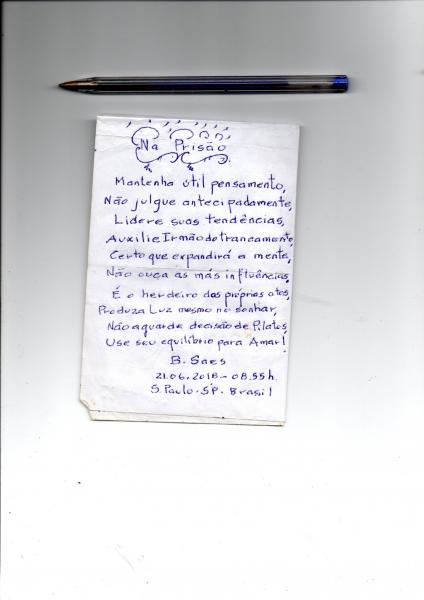 Na Prisão
Mantenha útil pensamento,
Não julgue antecipadamente,
Lidere suas tendências,
Auxilie Irmão do trancamento,
Certo que expandirá a mente,
Não ouça as más influências.
É o herdeiro das próprias atos,
Produza Luz mesmo no sonhar,
Não aguarde decisão de Pilatos,
Use seu equilíbrio para Amar!
B. Saes
21.06.2018 - 08.55h.
S. Paulo - SP - Brasil